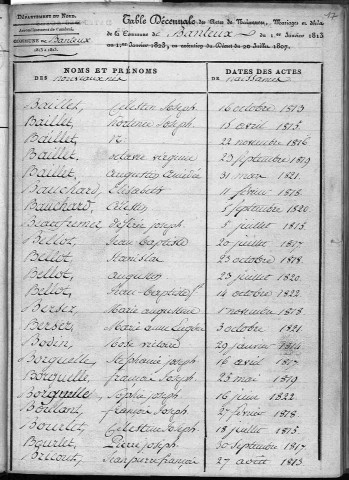 Département du Nord.
Arrondissement de Cambrai.
Commune de Banteux
1813 à 1823.
17
Table Décennale des Actes de Naissances, Mariages et décès
de la Commune de Banteux du 1.er Janvier 1813
au 1.er Janvier 1823, en exécution du Décret du 20 Juillet 1807.
NOMS ET PRÉNOMS
DES nouveaux nés
DATES DES ACTES
de naissance
Baillet, Célestin Joseph 16 octobre 1813
Baillet, Joseph 15 avril 1815
Baillet, 22 novembre 1816
Baillet, octavie virginie 23 septembre 1819
Baillet, augustin 31 mars 1821
Bauchard, Elisabeth 11 février 1818
Bauchard, Célestin 5 septembre 1820
désirée joseph 5 juillet 1813
Bellot, Jean Baptiste 20 juillet 1817
Bellot, Stanislas 23 octobre 1818
Bellot, augustin 23 juillet 1820
Bellot, Jean Baptiste 14 octobre 1822
Berser, Marie augustine 1 novembre 1818
Berser, Marie anne 3 octobre 1821
Bodin, Rose victoire 29 janvier 1814
Borquelle, Stéphanie joseph 16 avril 1817
Borquelle, françois Joseph 23 mai 1819
Borquelle, Sophie joseph 16 juin 1822
françois Joseph 27 février 1818
Bourlet, Célestin Joseph 18 juillet 1815
Bourlet, Pierre joseph 30 septembre 1817
Bricout, Jean pierre françois 27 août 1813